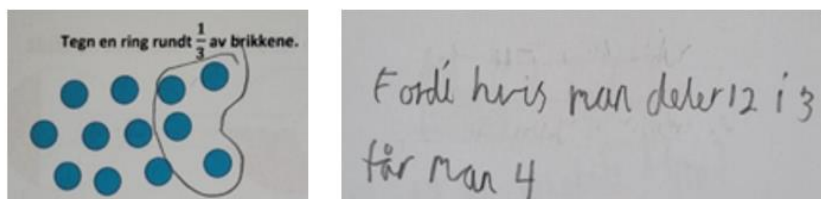 Tegn en ring rundt 1/3 av brikkene.
Fordi hvis man deler 12 i 3
får man 4